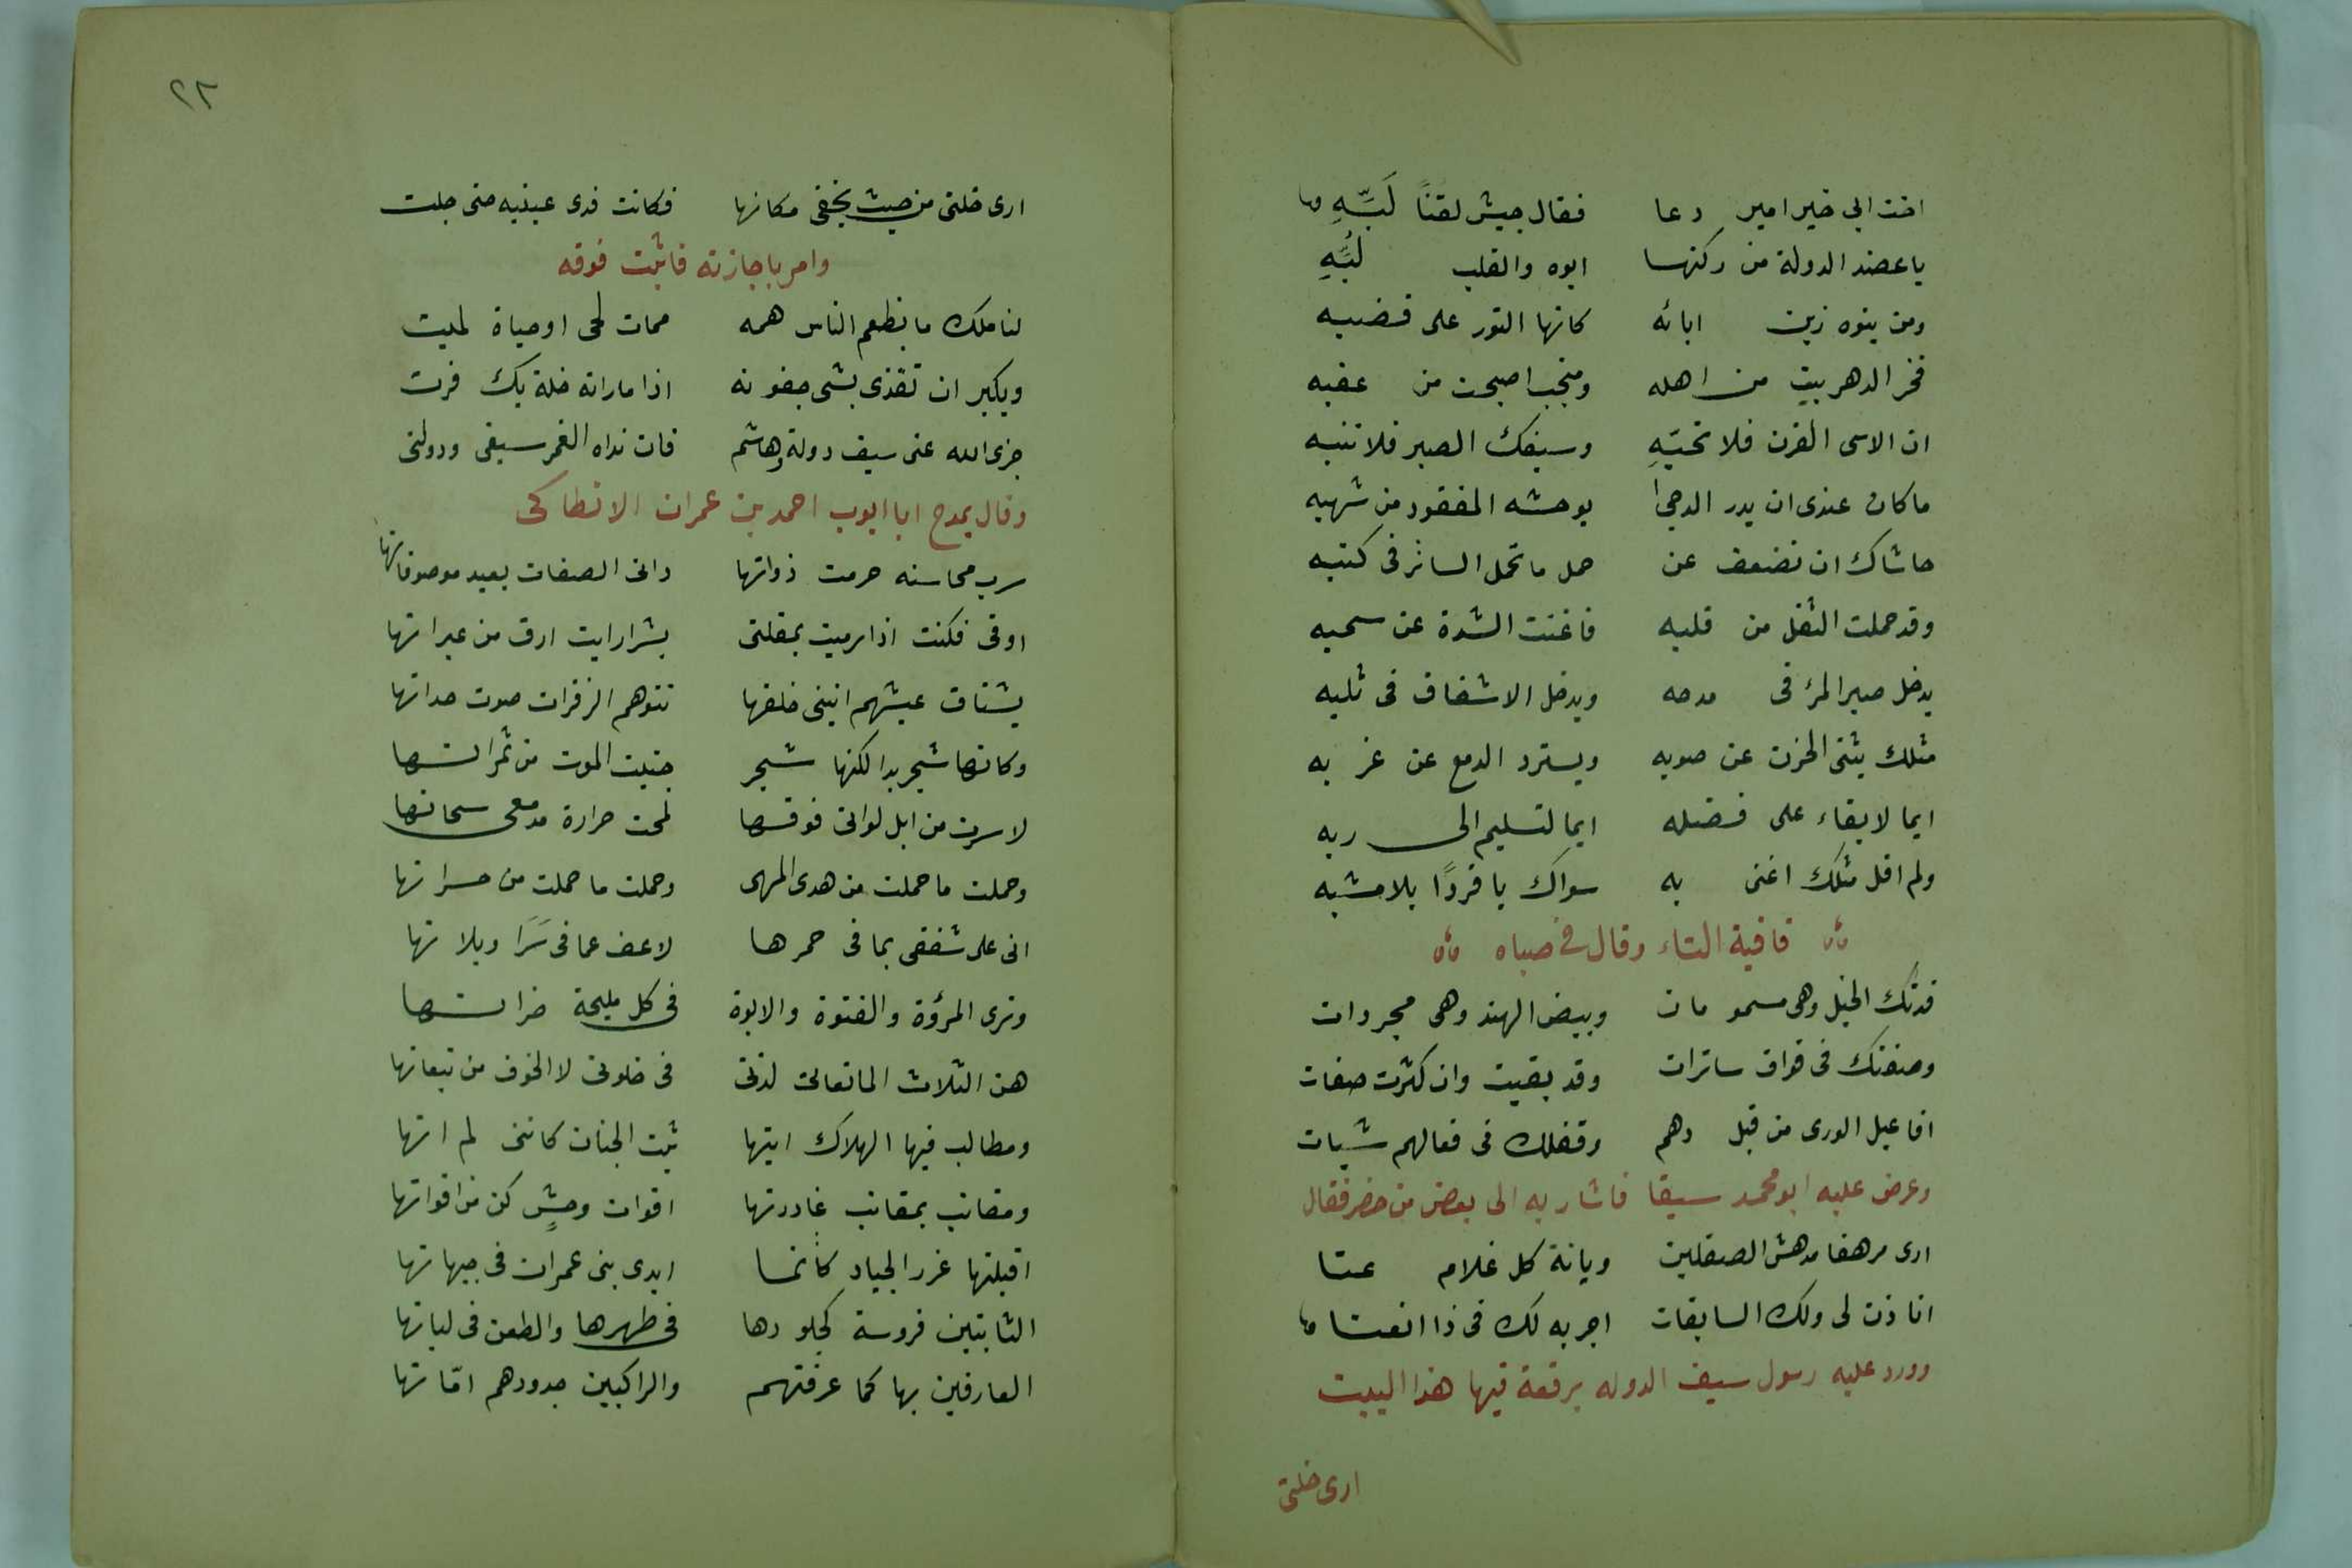 اخت الى خير امير دعا فقال جيش لقنًا لَبِّهِ
يا عضد الدولة من ركنها ابوه والقلب لُبِّهِ
ومن بنوه زين ابائه كانها النور على قضبه
فخر الدهر بيت من اهله ومنجب اصبحت من عقبه
ان الاسى القرن فلا تحيّهِ وسيفك الصبر فلا تنبه
ما كان عندى ان بدر الدجى يوحشه المفقود من شهبه
حاشاك ان تضعف عن حمل ما تحمل السائر فى كتبه
وقد حملت الثقل من قلبه فاغنت الشدة عن سحبه
يدخل صبر المرٔ فى مدحه ويدخل الاشفاق فى ثلبه
مثلك يثنى الحزن عن صوبه ويسترد الدمع عن غربه
ايما لابقاء على فضله ايما لتسليم الى ربه
ولم اقل مثلك اعنى به سواك يا فردًا بلا مشبه
قافية التاء وقال فى صباه
فدتك الخيل وهى مسومات وبيض الهند وهى مجردات
وصفتك فى قواف سائرات وقد بقيت وان كثرت صفات
افاعيل الورى من قبل دهم وفعلك فى فعالهم شيات
وعرض عليه ابو محمد سيفا فاشار به الى بعض من حضر فقال
ارى مرهفا مدهش الصيقلين وبابة كل غلام عتا
اتاذن لى ولك السابقات اجربه لك فى ذا الفتا
وورد عليه رسول سيف الدوله برقعة فيها هذا البيت
ارى خلتى
٢٣
ارى خلتى من حيث يخفى مكانها فكانت قدى عينيه حتى جلت
وامر باجازته فاثبت فوقه
لنا ملك ما يطعم الناس همه ممات لحى او حياة لميت
ويكبر ان تقذى بشى جفونه اذا ما راته خلة بك فرت
جزى الله عنى سيف دولة هاشم فان نداه الغمر سيفى ودولتى
وقال يمدح ابا ايوب احمد بن عمران الانطاكى
سرب محاسنه حرمت ذواتها دانى الصفات بعيد موصوفاتها
اوفى فكنت اذا رميت بمقلتى بشرا رايت ارق من عبراتها
يشتاق عيشهم انينى خلفها تتوهم الزفرات صوت حداتها
وكانها شجر بدا لكنها شجر جنيت الموت من ثمراتها
لا سرت من ابل لوانى فوقها لمحت حرارة مدمعى سحاتها
وحملت ما حملت من هدى المهى وحملت ما حملت من حسراتها
انى على شفقى بما فى خمرها لاعف عما فى سَرَا ويلاتها
وترى المرؤة والفتوة والابوة فى كل مليحة ضراتها
هن الثلاث المانعاتى لذتى فى خلوتى لا الخوف من تبعاتها
ومطالب فيها الهلاك اتيتها ثبت الجنان كاننى لم اتها
ومقانب بمقانب غادرتها اقوات وحشٍ كن من اقواتها
اقبلتها غرر الجياد كانما ايدى بنى عمران فى جبهاتها
الثابتين فروسة كجلودها فى ظهرها والطعن فى لباتها
العارفين بها كما عرفتهم والراكبين جدودهم امّاتها